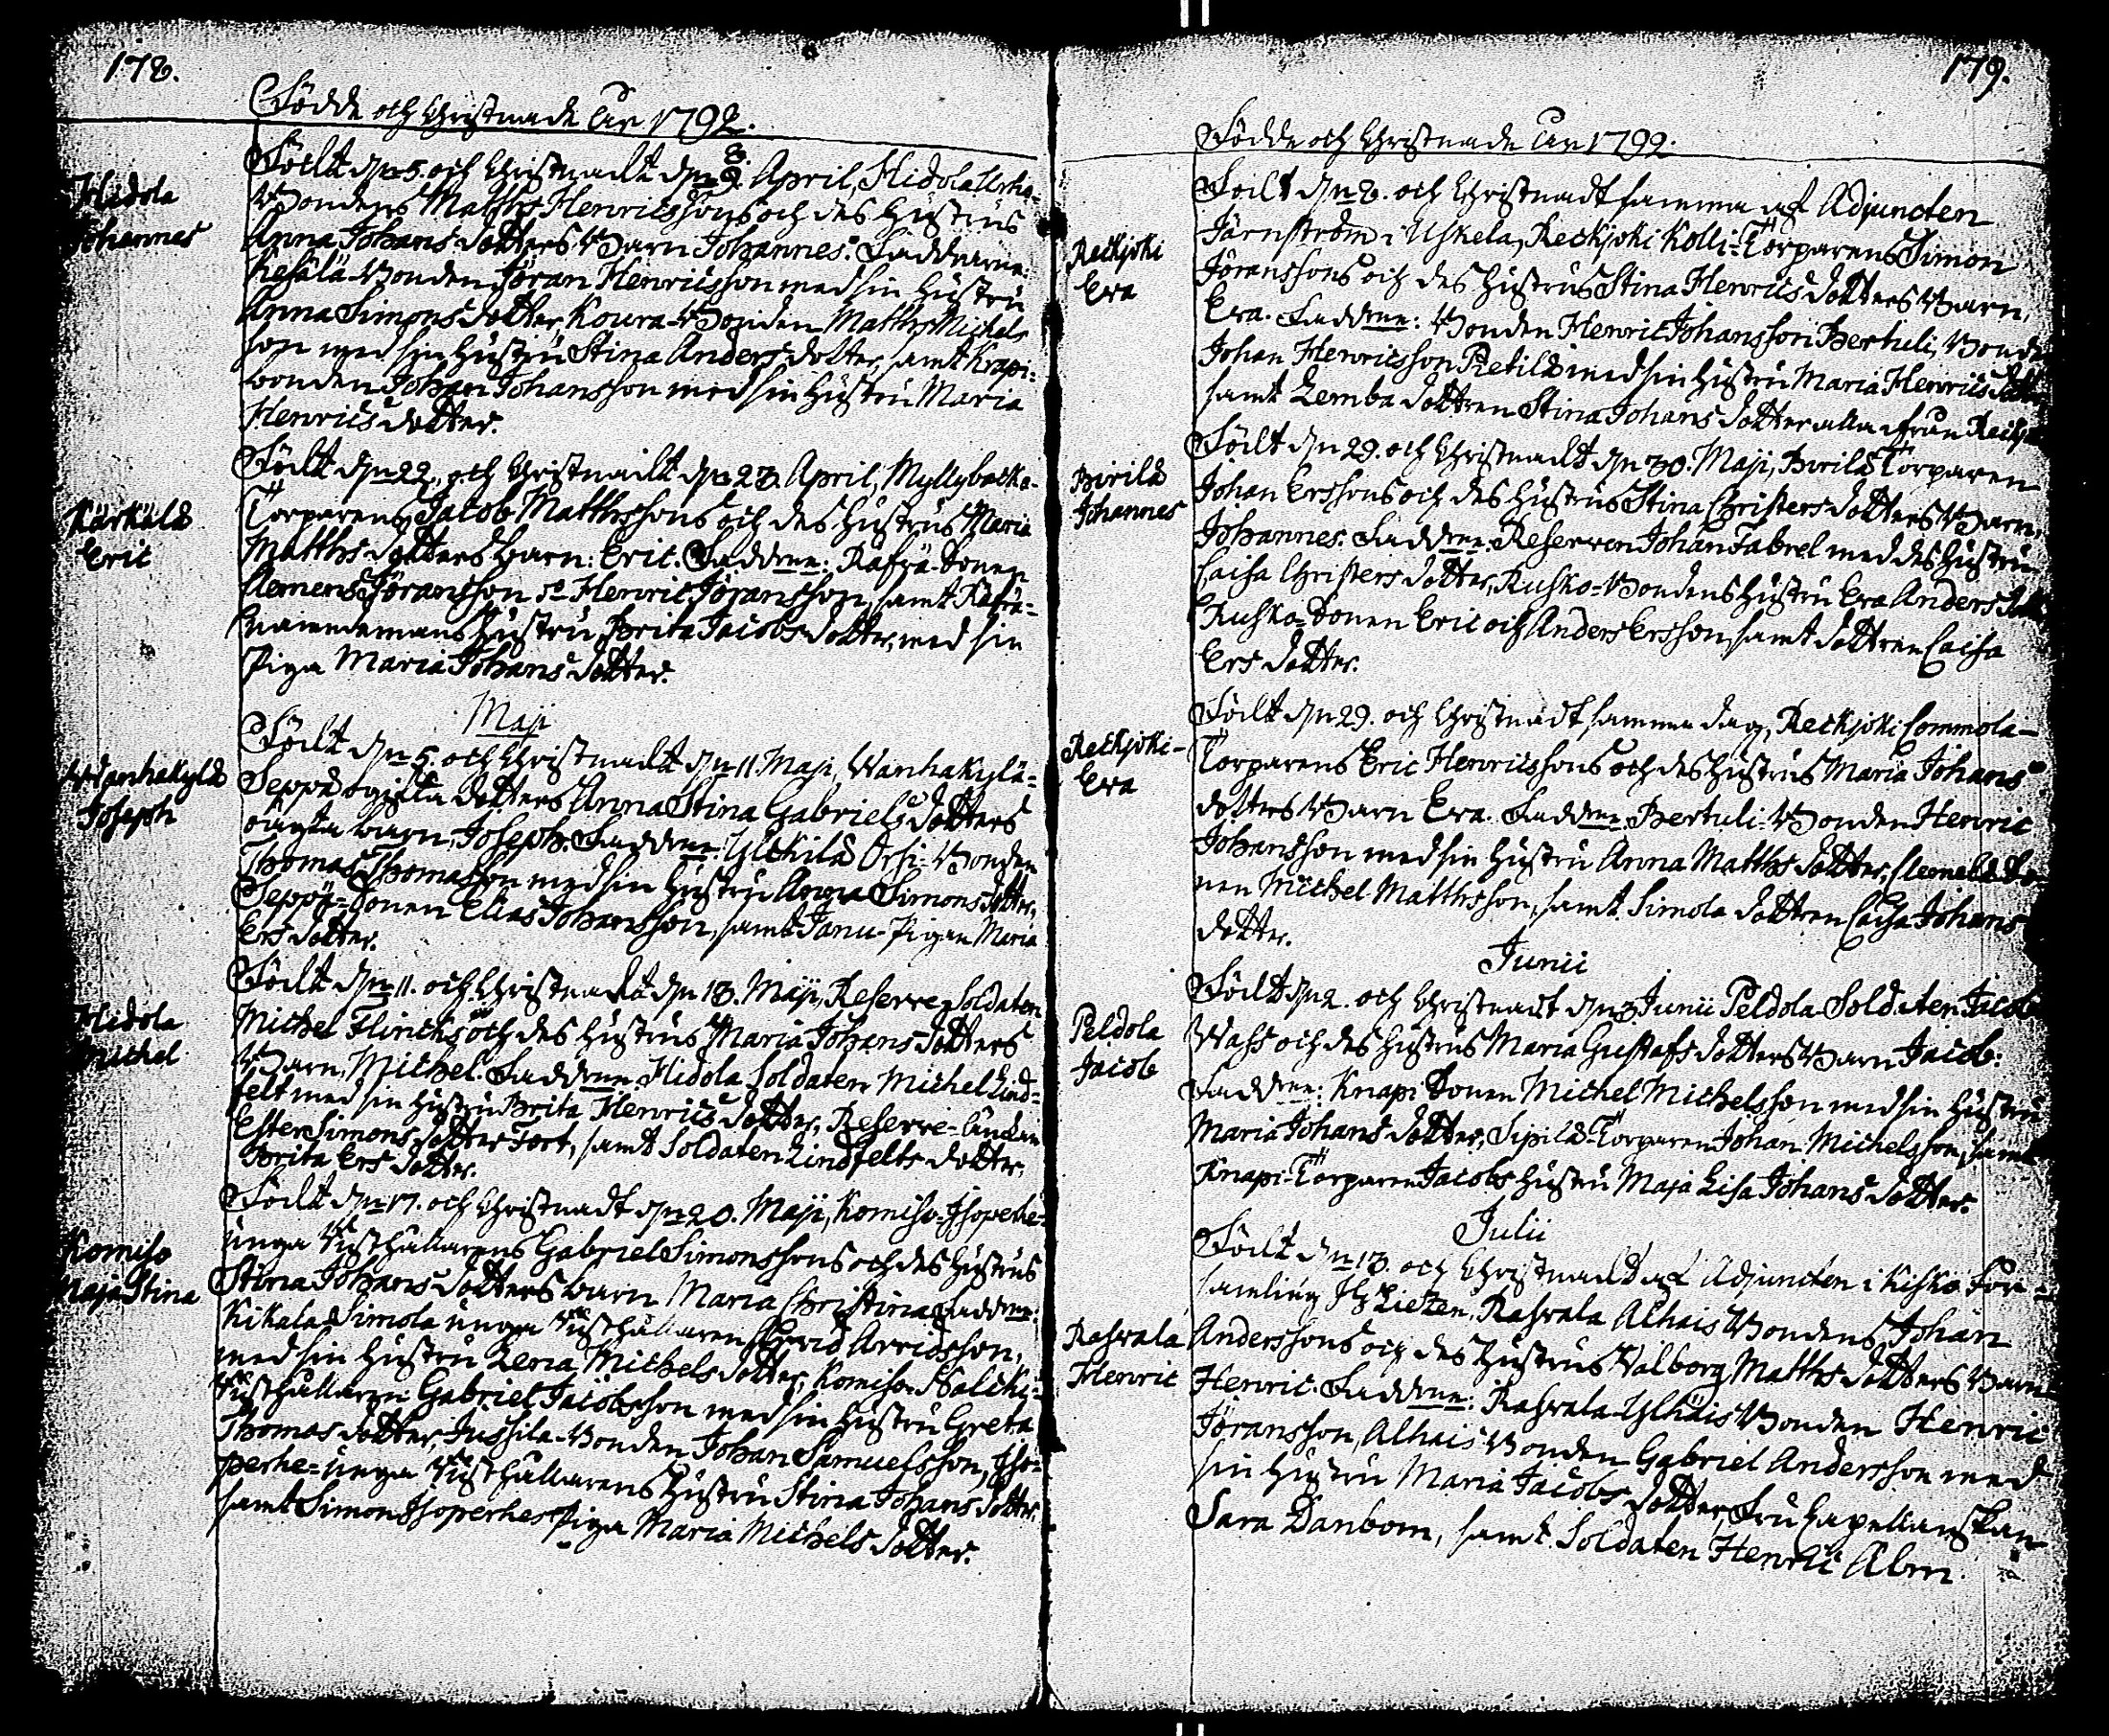 178.
Födde och Christnade År 1792.
Hidola
Johannes
Födt den 5. och Christnadt den 8. April, Hidola Uska-
Bondens Matths Henricssons och des Hustrus
Anna Johans dotters Barn Johannes. Faddrarne:
Kesälä-Bonden Jöran Henricsson med sin Hustru
Anna Simons dotter, Koura-Bonden Matths Michels
son med sin Hustru Stina Anders dotter, samt Krapi-
bonden Johan Johansson med sin Hustru Maria
Henrics dotter.
Kärkälä
Eric
Födt den 22. och Christnadt den 23. April, Myllybacka-
Torparens Jacob Matthssons och des Hustrus Maria
Matths dotters Barn: Eric. Faddrne: Rafvä-Sonen
Clemens Jöransson, Henric Jöransson, samt Rafvä-
Nämndemans Hustru Brita Jacobs dotter, med sin
Piga Maria Johans dotter.
Maji
Wanhakylä
Joseph
Födt den 5. och Christnadt den 11. Maji, Wanhakylä-
Seppä ogifta dotters Anna Stina Gabriels dotters
oägta barn, Joseph. Faddrne: Yltkilä Orsi-Bonden
Thomas Thomasson med sin Hustru Anna Simons dotter,
Seppä-Sonen Elias Johansson, samt Janu-Pigan Maria
Ers dotter.
Hidola
Michel
Födt den 11. och Christnadt den 13. Maji, Reserve Soldaten
Michel Flincks och des Hustrus Maria Johans dotters
Barn, Michel. Faddrne: Hidola Soldaten Michel Lind-
felt med sin Hustru Brita Henrics dotter, Reserve-Änkan
Ester Simons dotter Fort, samt Soldaten Lindfelts dotter,
Brita Ers dotter.
Komiso
Maja Stina
Födt den 17. och Christnadt den 20. Maji, Komiso-Isoperhe-
unga Rusthållarens Gabriel Simonssons och des Hustrus
Stina Johans dotters barn Maria Christina. Faddrne:
Kikala Simola unga Rusthållaren Arvid Arvidsson,
med sin Hustru Lena Michels dotter, Komiso
Rusthållaren Gabriel Jacobsson med sin Hustru Greta
Thomas dotter, Jussila-Bonden Johan Samuelsson, Iso-
perhe-unga Rusthållarens Hustru Stina Johans dotter,
samt Simon Isoperhes Piga Maria Michels dotter.
179.
Födde och Christnade År 1792.
Reckjoki
Eva
Födt den 8. och Christnadt samma af Adjuncten
Järnström i Uskela, Reckjoki Kolli-Torparens Simon
Jöranssons och des Hustrus Stina Henrics dotters Barn,
Eva. Faddrne: Bonden Henric Johansson Bertuli, Bonden
Johan Henricsson Pietilä med sin Hustru Maria Henrics dotter,
samt Lemba dottren Stina Johans dotter alla ifrån
Pirilä
Johannes
Födt den 29. och Christnadt den 30. Maji, Pirilä Torparen
Johan Erssons och des Hustrus Stina Christers dotters Barn,
Johannes. Faddrne: Reserven Johan Tabrel med des Hustru
Caisa Christers dotter, Rusko-Bondens Hustru Eva Anders dotter
Rusko-Sonen Eric och Anders Ersson, samt dottren Caisa
Ers dotter.
Reckjoki-
Eva
Födt den 29. och Christnadt samma dag, Reckjoki Commola-
Torparens Eric Henricssons och des Hustrus Maria Johans
dotters Barn Eva. Faddrne: Bertuli-Bonden Henric
Johansson med sin Hustru Anna Matths dotter,
nen Michel Matthsson, samt Simola dottren Caisa Johans
dotter.
Junii
Peldola
Jacob
Födt den 2. och Christnadt den 3. Junii Peldola Soldaten Jacob
Wass och des Hustrus Maria Gustafs dotters Barn Jacob:
Faddrne: Knapi Sonen Michel Michelsson med sin Hustru
Maria Johans dotter, Sipilä-Torparen Johan Michelsson, samt
Knapi-Torparen Jacobs Hustru Maja Lisa Johans dotter.
Julii
Rasvala
Henric
Födt den 13. och Christnadt af Adjuncten i Kisko För-
samling H: Lietzen, Rasvala Alhais Bondens Johan
Anderssons och des Hustrus Valborg Matths dotters Barn
Henric. Faddrne: Rasvala-Ylhäis Bonden Henric
Jöransson, Alhais Bonden Gabriel Andersson med
sin Hustru Maria Jacobs dotter, Fru Capellanskan
Sara Danbom, samt Soldaten Henric Alm.